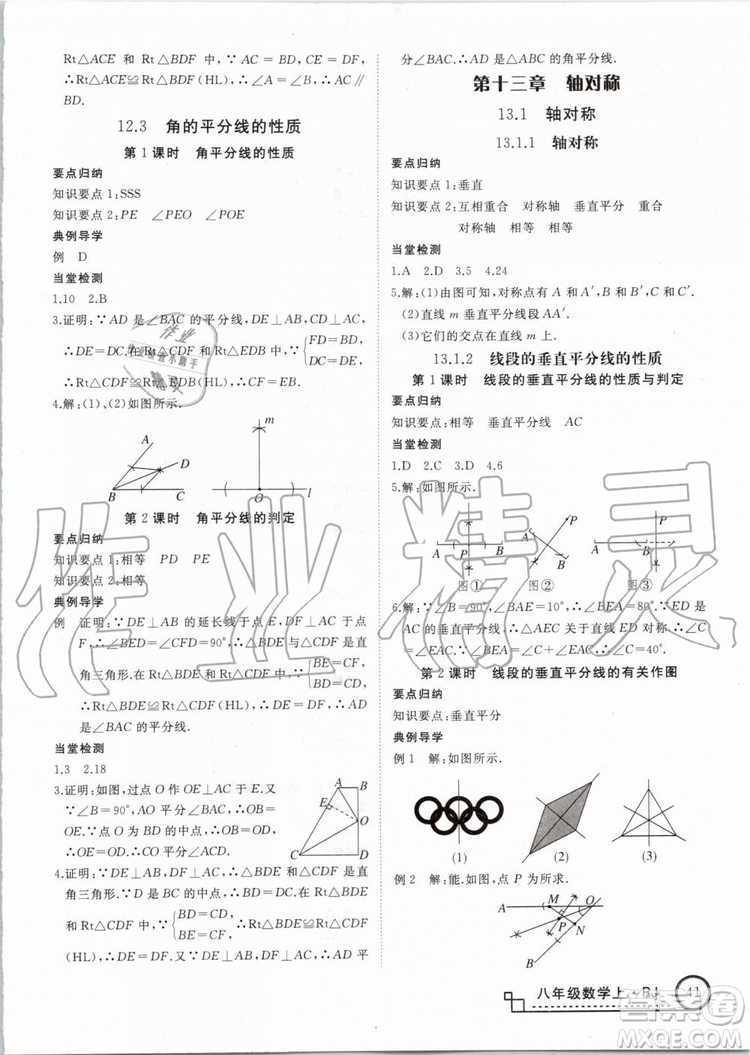 Rt△ACE 和 Rt△BDF 中,∵ AC=BD,CE=DF,
∴Rt△ACE≌Rt△BDF(HL),∴∠A=∠B,∴AC∥
BD.
12.3 角的平分线的性质
第1课时 角平分线的性质
要点归纳
知识要点1:SSS
知识要点2:PE ∠PEO ∠POE
典例导学
例 D
当堂检测
1.10 2.B
3.证明:∵AD 是∠BAC 的平分线,DE⊥AB,CD⊥AC,
∴DE=DC.在 Rt△CDF 和 Rt△EDB 中,∵{FD=BD, DC=DE,
∴Rt△CDF≌Rt△EDB(HL),∴CF=EB.
4.解:(1)、(2)如图所示.
A D B C
m O l
第2课时 角平分线的判定
要点归纳
知识要点1:相等 PD PE
知识要点2:相等
典例导学
例 证明:∵DE⊥AB 的延长线于点 E,DF⊥AC 于点
F,∴∠BED=∠CFD=90°,∴△BDE 与△CDF 是直
角三角形.在 Rt△BDE 和 Rt△CDF 中,∵{BE=CF, BD=CD,
∴Rt△BDE≌Rt△CDF(HL),∴DE=DF,∴AD 是
∠BAC 的平分线.
当堂检测
1.3 2.18
3.证明:如图,过点 O 作 OE⊥AC 于 E.
∵∠B=90°,AO 平分∠BAC,∴OB=
OE.∵点 O 为 BD 的中点,∴OB=
OD,∴OE=OD,∴OC 平分∠ACD.
A B E O C D
4.证明:∵DE⊥AB,DF⊥AC,∴△BDE 与△CDF 是直
角三角形.∵D 是 BC 的中点,∴BD=CD.在 Rt△BDE
和 Rt△CDF 中,∵{BD=CD, BE=CF, ∴Rt△BDE≌Rt△CDF
(HL),∴DE=DF.∵DE⊥AB,DF⊥AC,∴AD 平
分∠BAC.∴AD 是△ABC 的角平分线.
第十三章 轴对称
13.1 轴对称
13.1.1 轴对称
要点归纳
知识要点1:垂直
知识要点2:互相重合 对称轴 垂直平分 重合
对称轴 相等 相等
当堂检测
1.A 2.D 3.5 4.24
5.解:(1)由图可知,对称点有 A 和 A′,B 和 B′,C 和 C′.
(2)直线 m 垂直平分线段 AA′.
(3)它们的交点在直线 m 上.
13.1.2 线段的垂直平分线的性质
第1课时 线段的垂直平分线的性质与判定
要点归纳
知识要点:相等 垂直平分线 AC
当堂检测
1.D 2.C 3.D 4.6
5.解:如图所示.
A P B A P B A B P
图① 图② 图③
6.解:∵∠B=90°,∠BAE=10°,∴∠BEA=80°.∵ED 是
AC 的垂直平分线,∴△AEC 关于直线 ED 对称,∴∠C
=∠EAC.∵∠BEA=∠C+∠EAC,∴∠C=40°.
第2课时 线段的垂直平分线的有关作图
要点归纳
知识要点:垂直平分
典例导学
例1 解:如图所示.
(1) (2) (3)
例2 解:能.如图,点 P 为所求.
A M O P N B
八年级数学上·RJ 41
作业精灵
答案圈
MXQE.COM